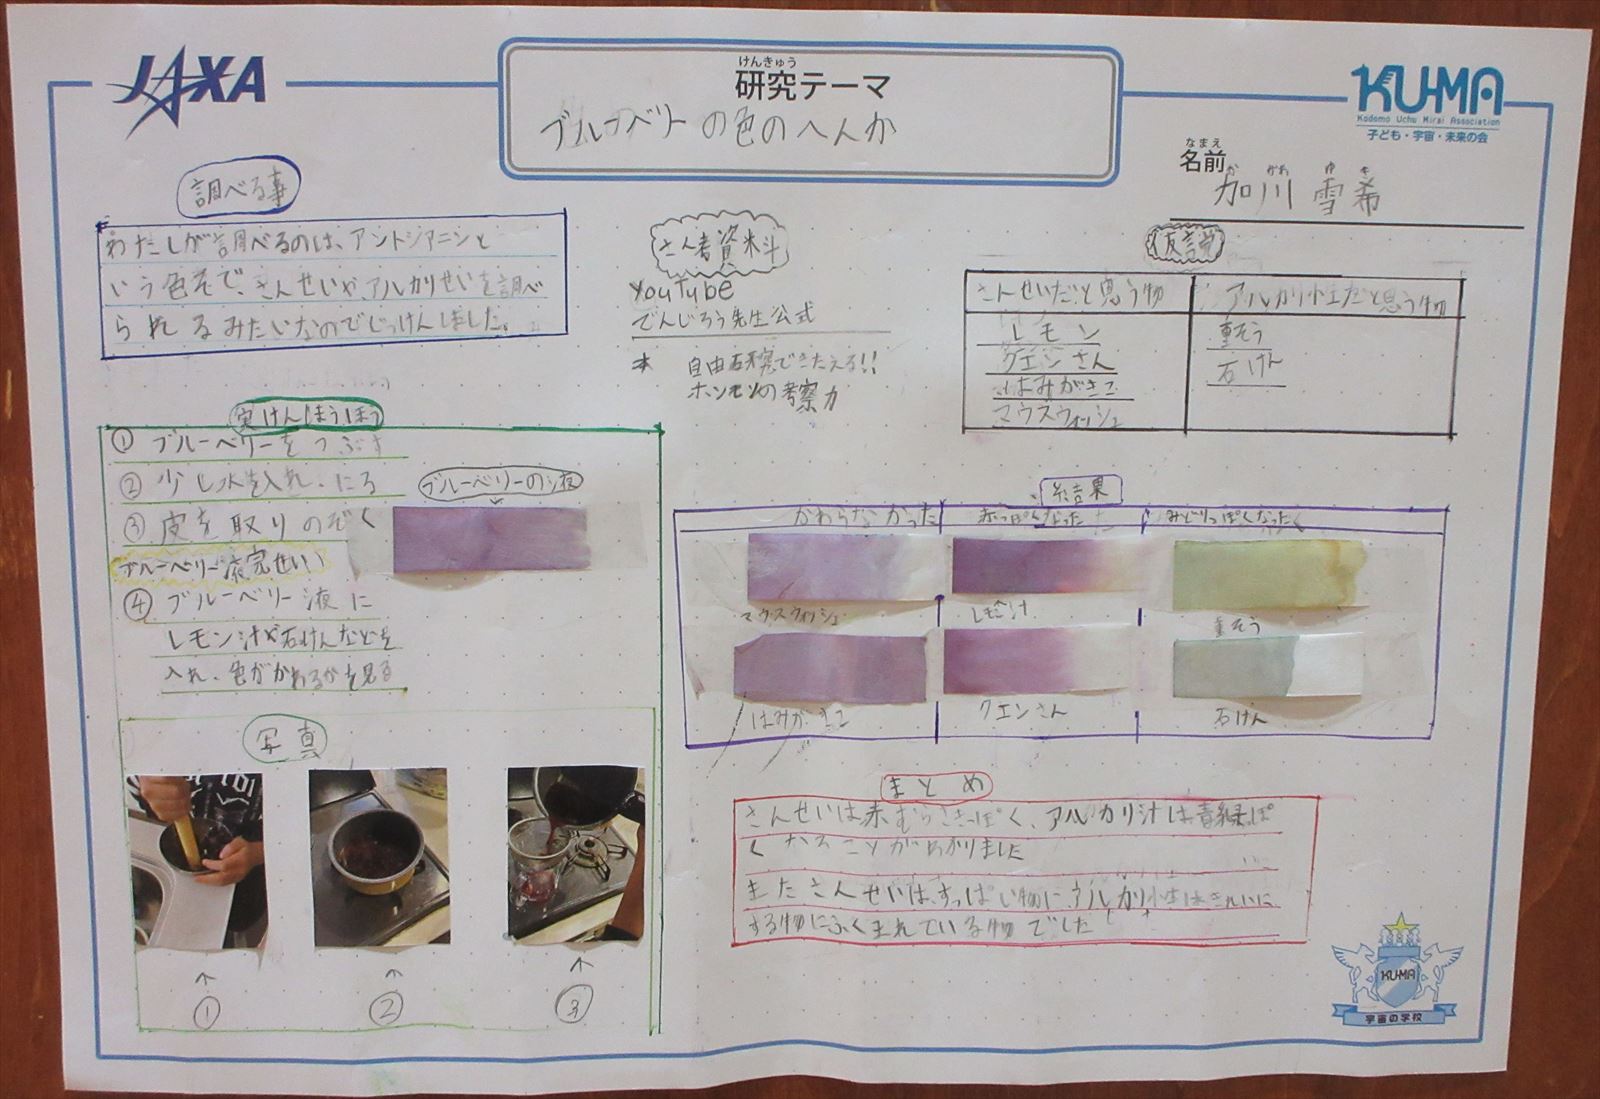 JAXA
けんきゅう
研究テーマ
ブルーベリーの色のへんか
KU-MA
Kodomo Uchu Mirai Association
子ども・宇宙・未来の会
なまえ
名前
か がわ ゆ き
加川 雪希
調べる事
わたしが調べるのは、アントシアニンと
いう色そで、さんせいや、アルカリせいを調べ
られるみたいなのでじっけんしました。
さん考資料
YouTube
でんじろう先生公式
* 自由研究できたえる!!
ホンモノの考察力
仮説
さんせいだと思う物 アルカリ性だと思う物
レモン 重そう
クエンさん 石けん
はみがきこ
マウスウォッシュ
実けんほうほう
① ブルーベリーをつぶす
② 少し水を入れ、にる
③ 皮を取りのぞく
ブルーベリー液完せい
④ ブルーベリー液に
レモン汁や石けんなどを
入れ、色がかわるかを見る
ブルーベリーの液
写真
↑ ↑ ↑
① ② ③
結果
かわらなかった 赤っぽくなった みどりっぽくなった
マウスウォッシュ レモン汁 重そう
はみがきこ クエンさん 石けん
まとめ
さんせいは赤むらさきっぽく、アルカリ汁は青緑っぽ
くなることがわかりました
またさんせいは、すっぱい物に、アルカリ性はきれいに
する物にふくまれている物でした
KU-MA
宇宙の学校